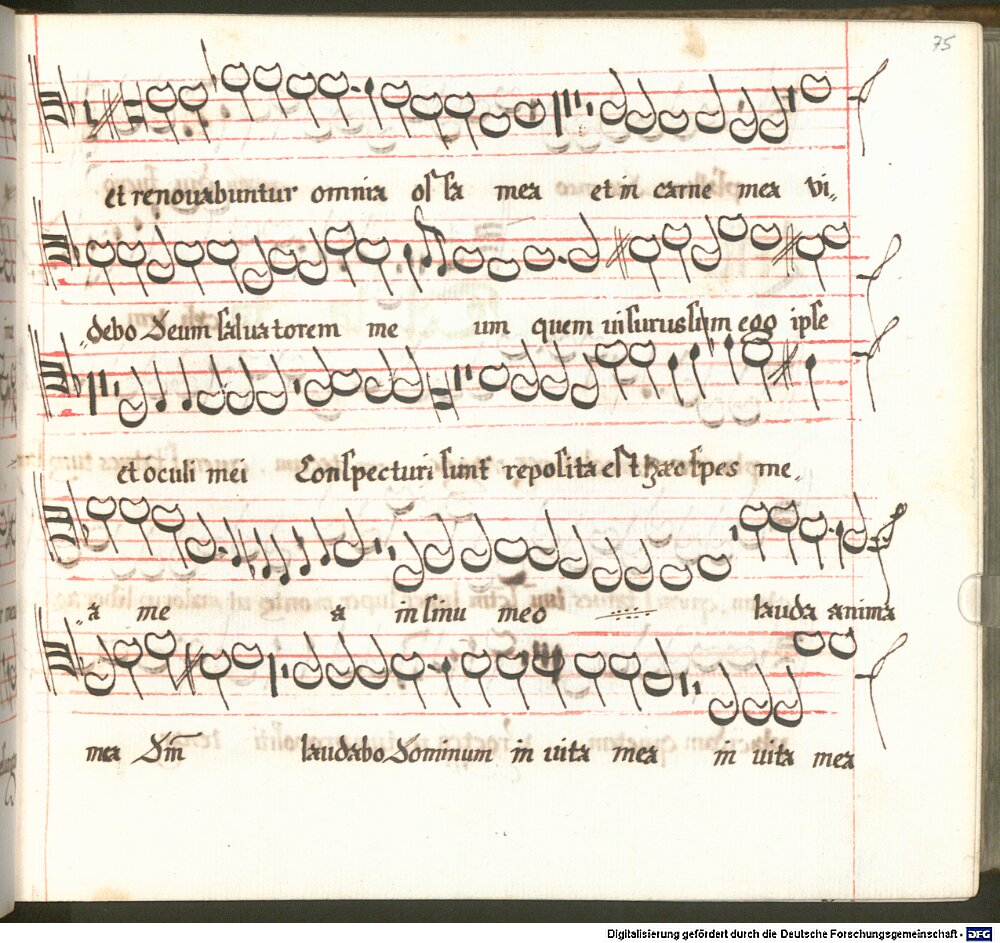 75
et renouabuntur omnia ossa mea et in carne mea vi„
„debo Deum saluatorem me um quem uisurus sum ego ipse
et oculi mei Conspecturi sunt reposita est haec spes me„
„a me a in sinu meo lauda anima
mea Dm̄ laudabo Dominum in uita mea in uita mea
Digitalisierung gefördert durch die Deutsche Forschungsgemeinschaft - DFG